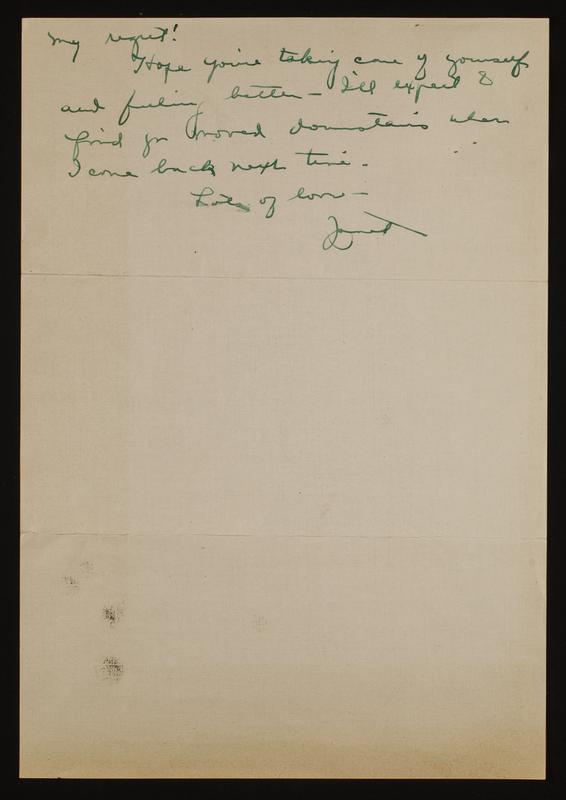 my regret!
Hope you're taking care of yourself
and feeling better – I'll expect to
find yr moved downstairs when
I come back next time.
Lots of love –
Janet